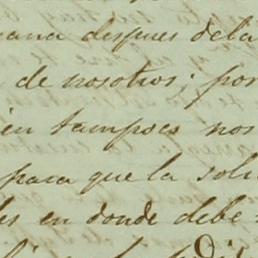 ana despues dela
de nosotros; por
en tampoco nos
para que la solu
les en donde debe